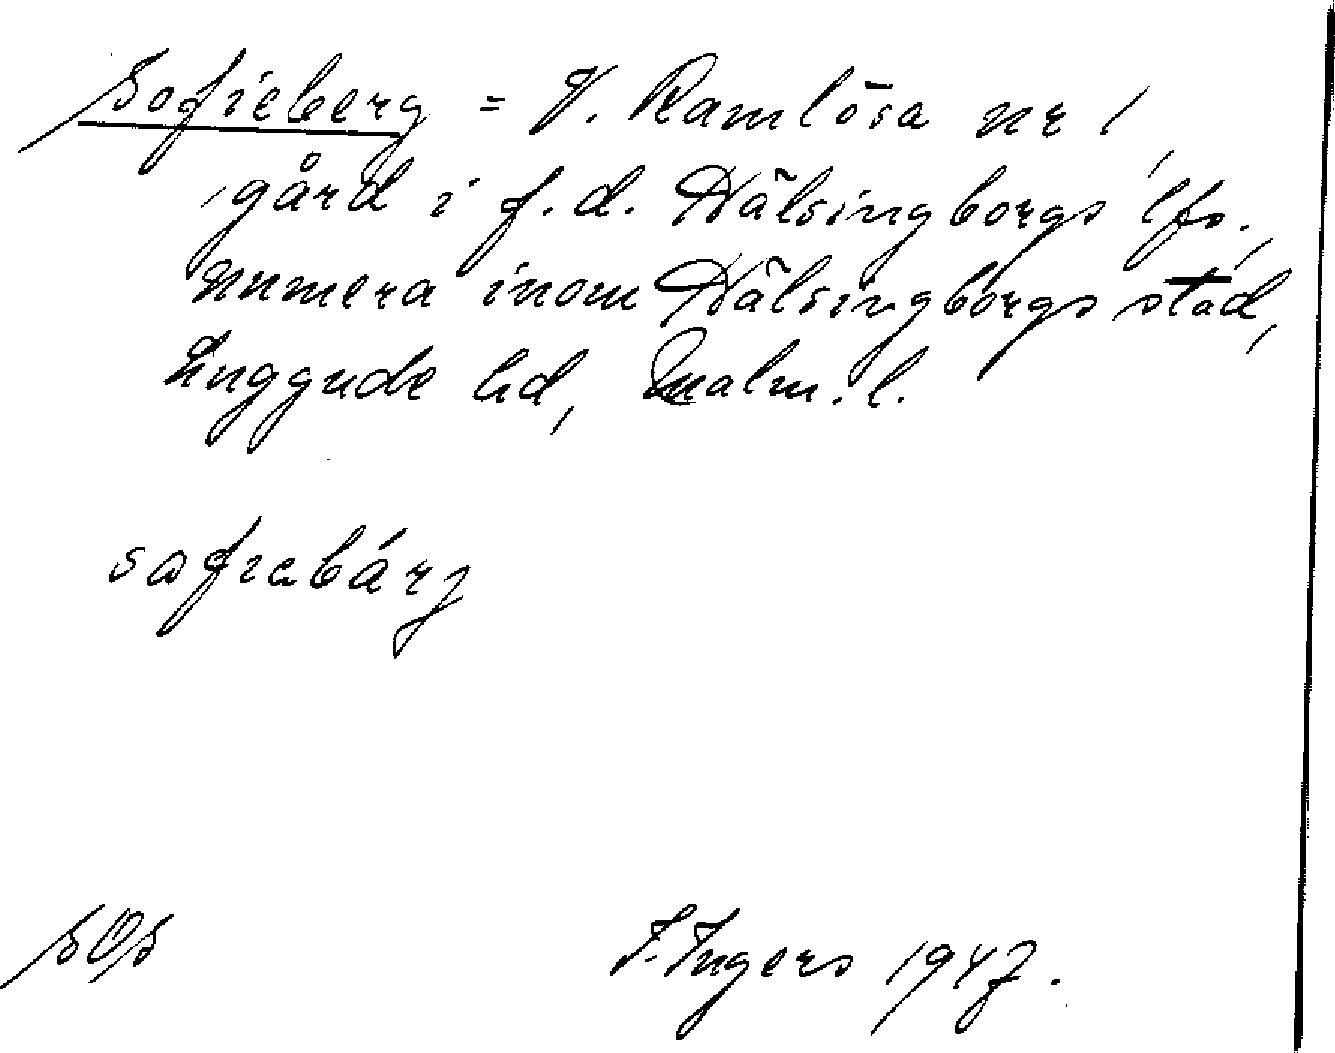 Sofieberg = V. Ramlösa nr 1,
gård i f.d. Hälsingborgs lfs.,
numera inom Hälsingborgs stad,
Luggude hd, Malm. l.
sofiabárj
SOS
I. Ingers 1947.